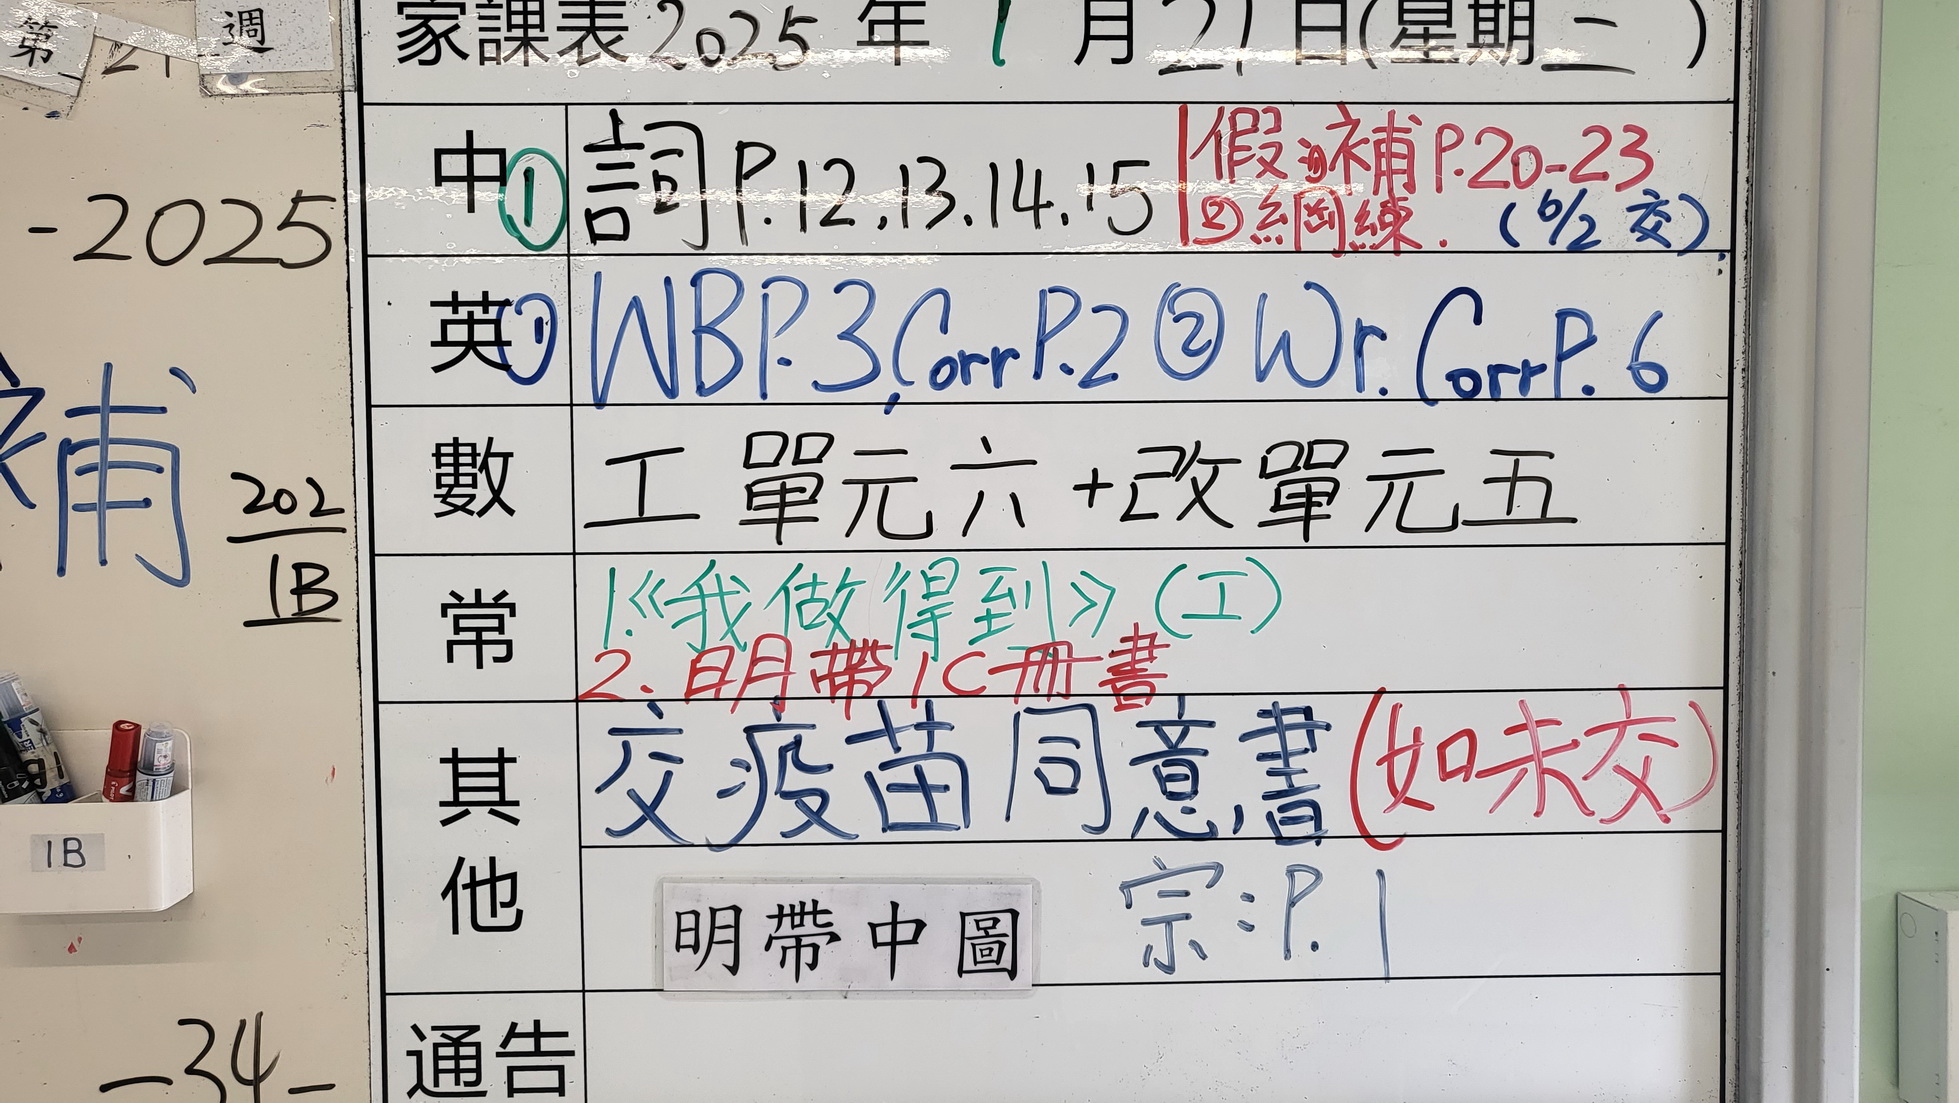 第 21 週
家課表 2025 年 1 月 21 日(星期二)
-2025
中 ① 詞 P.12,13.14.15
假:①補 P.20-23
②綱練. (6/2 交)
英 ① WB P.3, Corr P.2 ② Wr. Corr P. 6
補
202
1B
數 工 單元六+改單元五
常 1.《我做得到》(工)
2. 明帶1C冊書
其他 交疫苗同意書(如未交)
1B
明帶中圖 宗:P. 1
通告
-34-